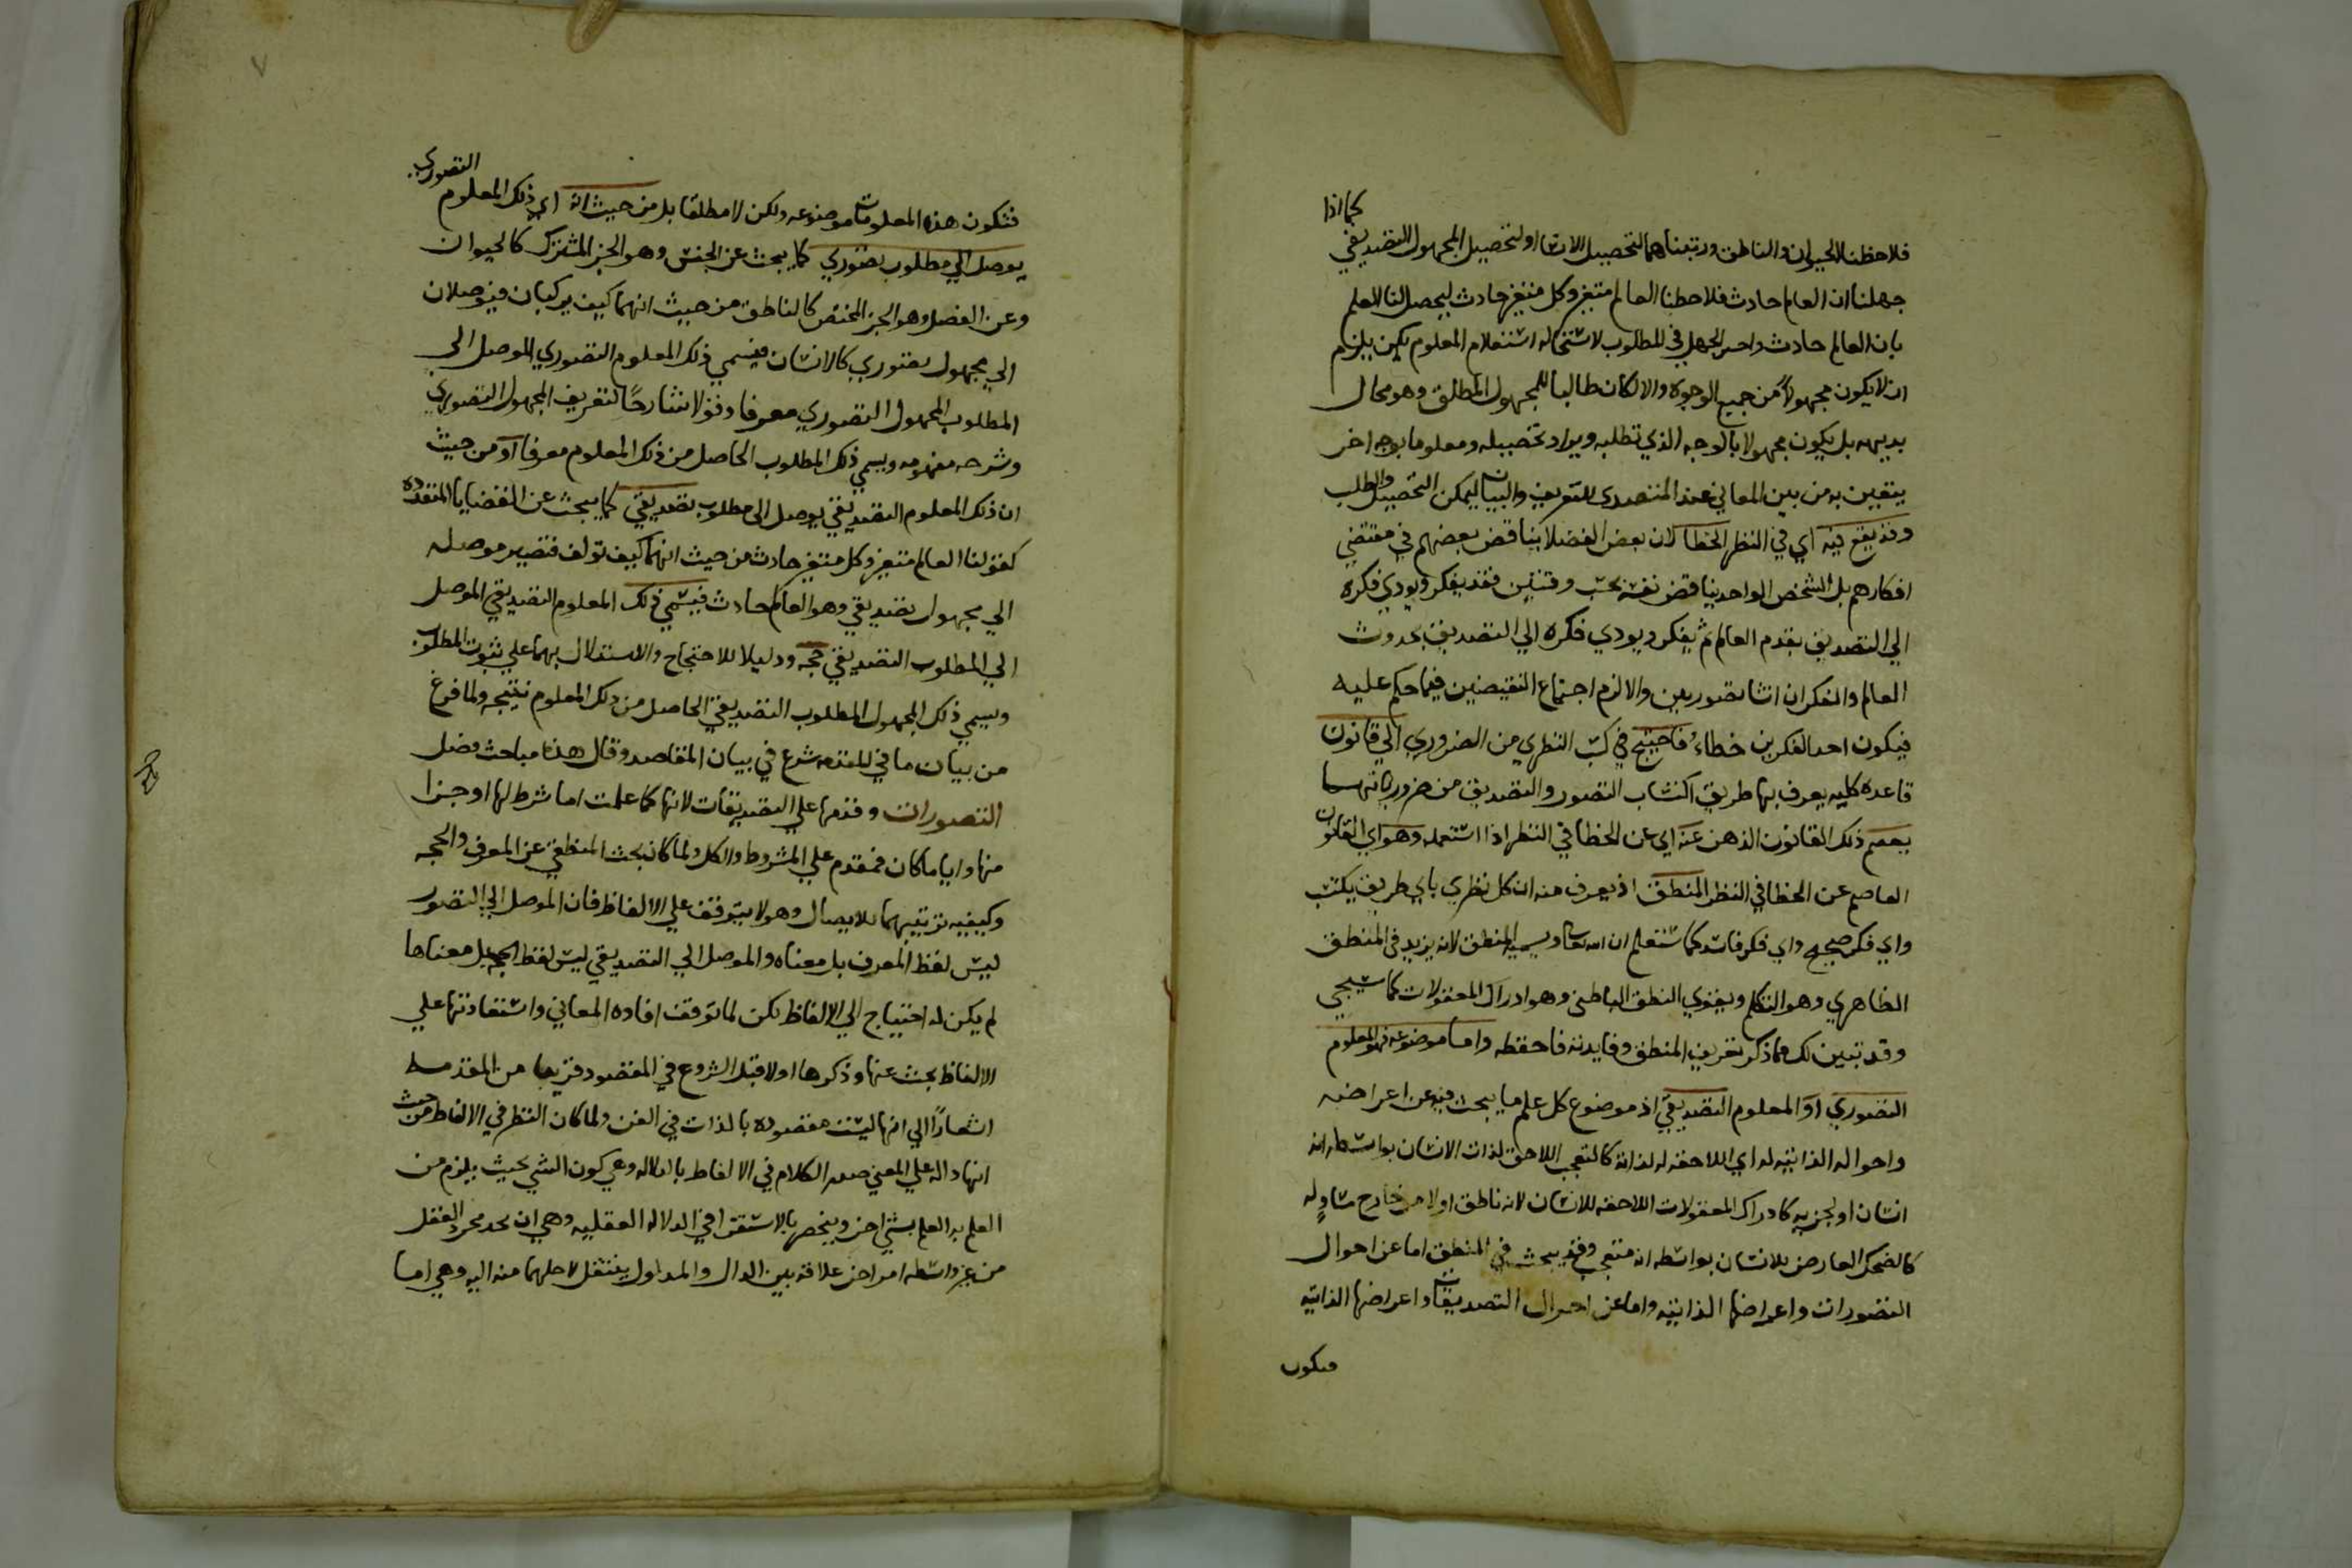 كما اذا
فلاحظنا الحيوان والناطق ورتبناهما لتحصيل الانسان او لتحصيل المجهول التصديقي
جهلنا ان العالم حادث فلاحظنا العالم متغير وكل متغير حادث ليحصل لنا العلم
بان العالم حادث واحد الجهل في المطلوب لاستحاله استعلام المعلوم لكن يلزم
ان لا يكون مجهولا من جميع الوجوه والا لكان طالبا للمجهول المطلق وهو محال
بديهه بل يكون مجهولا بالوجه الذي تطلبه ويراد تحصيله ومعلوما بوجه اخر
يتعين به من بين المعاني عند المتصدى للتعريف والبيان ليمكن التحصيل والطلب
وقد يقع فيه اي في النظر الخطا لان بعض الفضلا يناقض بعضهم في مقتضي
افكارهم بل الشخص الواحد يناقض نفسه بحسب وقتين فقد يفكر ويودي فكره
الي التصديق بقدم العالم ثم يفكر ويودي فكره الي التصديق بحدوث
العالم والفكران اتيا بصورتين والا لزم اجتماع النقيضين فيما حكم عليه
فيكون احد الفكرين خطاء فاحتيج في كسب النظري من الضروري الي قانون
قاعده كليه يعرف بها طريق اكتساب التصور والتصديق من ضرورياتهما
يعصم ذلك القانون الذهن عنه اي عن الخطا في النظر اذا استعمله وهو اي القانون
العاصم عن الخطا في النظر المنطق اذ يعرف منه ان كل نظري باي طريق يكتسب
واي فكر صحيح واي فكر فاسد كما ستعلم ان الله تعالى ويسمي المنطق لانه يزيد في المنطق
الظاهري وهو التكلم ويقوي النطق الباطني وهو ادراك المعقولات كما سيجي
وقد تبين لك مما ذكر تعريف المنطق وفايدته فاحفظه واما موضوعه فهو المعلوم
التصوري او المعلوم التصديقي اذ موضوع كل علم ما يبحث فيه عن اعراضه
واحواله الذاتيه له اي اللاحقه له لذاته كالتعجب اللاحق لذات الانسان بواسطه انه
انسان او لجزيه كادراك المعقولات اللاحقه للانسان لانه ناطق او لامر خارج مساوٍ له
كالضحك العارض للانسان بواسطه انه متعجب وقد يبحث في المنطق اما عن احوال
التصورات واعراضها الذاتيه واما عن احوال التصديقات واعراضها الذاتيه
فتكون
٧
فتكون هذه المعلومات موضوعه ولكن لا مطلقا بل من حيث انه اي ذلك المعلوم التصوري
يوصل الي مطلوب تصوري كما يبحث عن الجنس وهو الجز المشترك كالحيوان
وعن الفصل وهو الجز المختص كالناطق من حيث انهما كيف يركبان فيوصلان
الي مجهول تصوري كالانسان فيسمي ذلك المعلوم التصوري الموصل الى
المطلوب المجهول التصوري معرفا وقولا شارحًا لتعريف المجهول التصوري
وشرحه مفهومه ويسمي ذلك المطلوب الحاصل من ذلك المعلوم معرفا او من حيث
ان ذلك المعلوم التصديقي يوصل الى مطلوب تصديقي كما يبحث عن القضايا المتعدده
كقولنا العالم متغير وكل متغير حادث من حيث انهما كيف تولف فتصير موصله
الي مجهول تصديقي وهو العالم حادث فيسمي ذلك المعلوم التصديقي الموصل
الي المطلوب التصديقي حجه ودليلا للاحتجاج والاستدلال بهما علي ثبوت المطلوب
ويسمي ذلك المجهول المطلوب التصديقي الحاصل من ذلك المعلوم نتيجه ولما فرغ
من بيان ما في المقدمه شرع في بيان المقاصد وقال هذا مباحث فصل
التصورات وقدمها علي التصديقات لانها كما علمت اما شرط لها او جزا
منها وايا ما كان فمقدم علي المشروط والكل ولما كان بحث المنطقي عن المعرف والحجه
وكيفيه ترتيبهما للايصال وهو لا يتوقف علي الالفاظ فان الموصل الي التصور
ليس لفظ المعرف بل معناه والموصل الي التصديقي ليس لفظ الحجه بل معناها
لم يكن له احتياج الي الالفاظ لكن لما توقف افاده المعاني واستفادتها علي
الالفاظ بحث عنها وذكرها اولا قبل الشروع في المقصود قريبا من المقدمه
اشعارًا الي انها ليست مقصوده بالذات في الفن ولما كان النظر في الالفاظ من حيث
انها داله علي المعني صدر الكلام في الالفاظ بالدلاله وهي كون الشي بحيث يلزم من
العلم به العلم بشي اخر وينحصر بالاستقرا في الدلاله العقليه وهي ان يجد مجرد العقل
من غير واسطه امر اخر علاقه بين الدال والمدلول ينتقل لاجلهما منه اليه وهي اما